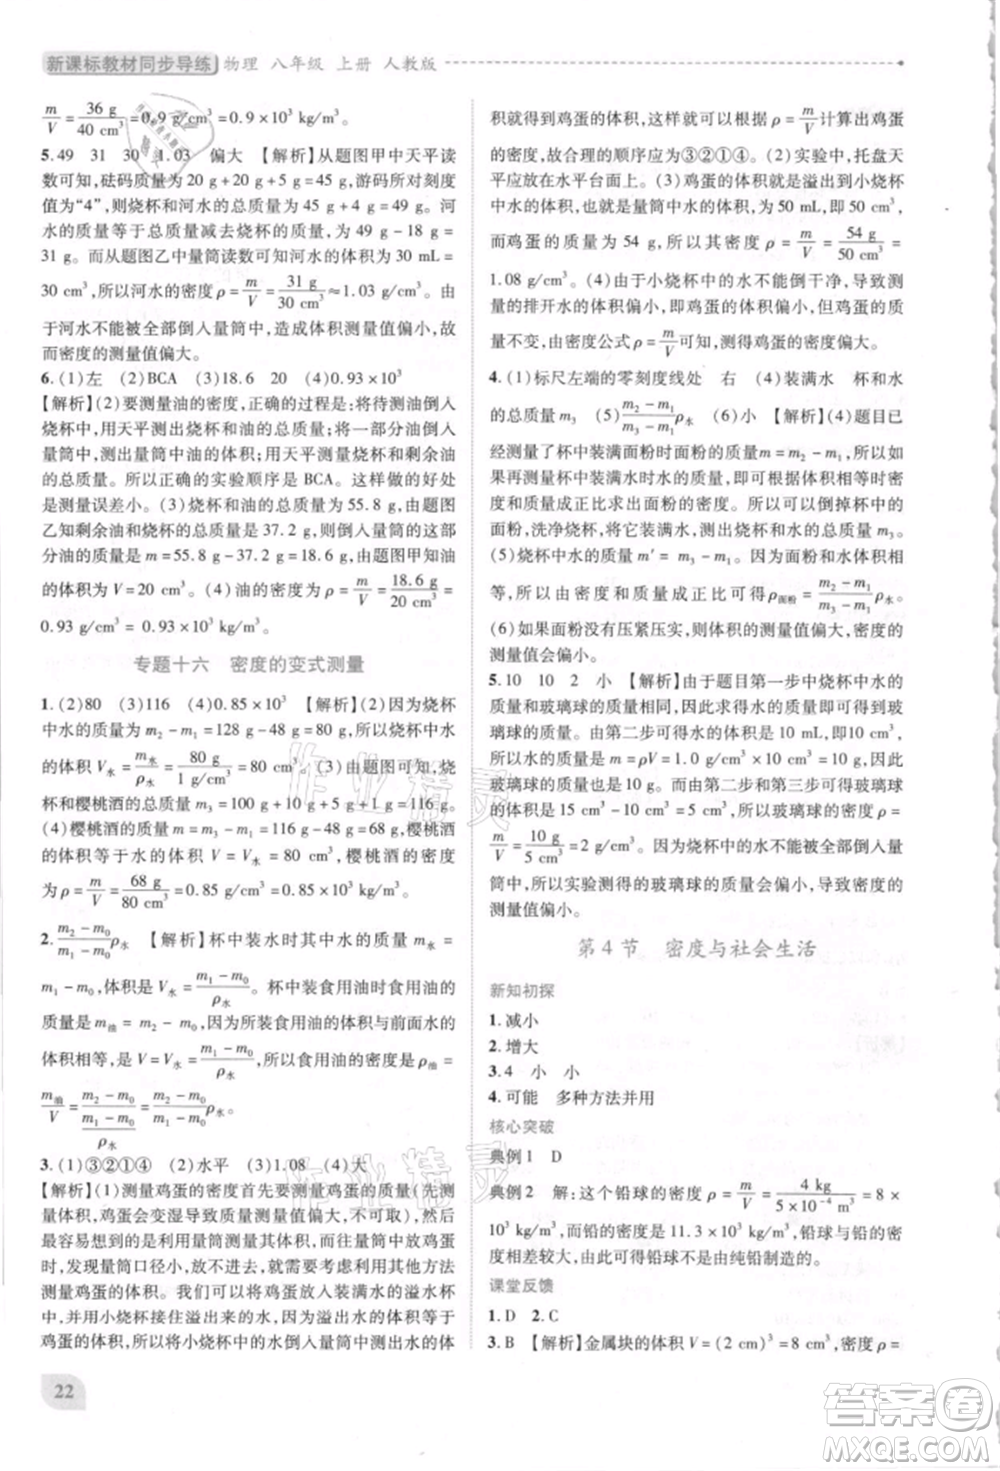 新课标教材同步导练 物理 八年级 上册 人教版
m/V = 36 g/40 cm³ = 0.9 g/cm³ = 0.9 × 10³ kg/m³。
5.49 31 30 1.03 偏大 【解析】从题图甲中天平读
数可知,砝码质量为 20 g + 20 g + 5 g,游码所对刻度
值为“4”,则烧杯和河水的总质量为 49 g。河
水的质量等于总质量减去烧杯的质量 49 g - 18 g =
31 g。从题图乙中量筒读数可知河水的体积为 30 mL =
30 cm³,所以河水的密度 ρ = m/V = 31 g/30 cm³ ≈ 1.03 g/cm³。
由于河水不能被全部倒入量筒中,造成体积测量值偏小,故
而密度的测量值偏大。
6.(1)左 (2)BCA (3)18.6 20 (4)0.93 × 10³
【解析】(2)要测量油的密度,正确的过程是:将待测油倒入
烧杯中,用天平测出烧杯和油的总质量,将烧杯中的油倒入
量筒中,测出油的体积;用天平测出剩余油和烧杯的总质
量,计算油的密度,则实验顺序是 BCA。这样做的好处
是测量误差小。(3)烧杯和油的总质量为 55.8 g,从题图
乙知剩余油和烧杯的总质量是 37.2 g,则倒入量筒中的部
分油的质量为 m = 55.8 g - 37.2 g = 18.6 g,从题图甲知油
的体积为 V = 20 cm³ (4)油的密度 ρ = m/V = 18.6 g/20 cm³ =
0.93 g/cm³ = 0.93 × 10³ kg/m³。
专题十六 密度的变式测量
1.(2)80 (3)116 (4)0.85 × 10³ 【解析】(2)因为烧杯
中水的质量为 m水 = m2 - m1 = 128 g - 48 g = 80 g,所以烧杯中水
的体积为 V水 = m水/ρ水 = 80 g/1 g/cm³ = 80 cm³;(3)由题图可知,烧
杯和樱桃酒的总质量 m3 = 100 g + 10 g + 5 g + 1 g = 116 g;
(4)樱桃酒的质量 m = m3 - m1 = 116 g - 48 g = 68 g,樱桃酒
的体积等于水的体积 V = V水 = 80 cm³,樱桃酒的密度
为 ρ = m/V = 68 g/80 cm³ = 0.85 g/cm³ = 0.85 × 10³ kg/m³。
2. m2 - m0/m1 - m0 ρ水 【解析】杯中装水时其中水的质量 m水 =
m1 - m0,V水 = m水/ρ水 = m1 - m0/ρ水。杯中装食用油时食用油的
质量为 m油 = m2 - m0,因为所装食用油的体积与前面水的
体积相等,是 V = V水 = m1 - m0/ρ水 所以食用油的密度 ρ油 =
m油/V = m2 - m0/m1 - m0/ρ水 = m2 - m0/m1 - m0 ρ水。
3.(1)③②①④ (2)水平 (3)1.08 (4)大
【解析】(1)测量鸡蛋的密度首先要测量鸡蛋的质量(先测
体积,鸡蛋会变湿导致质量测量值偏大,不可取),然后测
鸡蛋的体积。由于量筒口径小,放不进去,所以
鸡蛋的体积。我们可以将鸡蛋放入装满水的溢水杯
中,并用小烧杯接住溢出来的水,因为溢出水的体积等于
鸡蛋的体积,所以将小烧杯中的水倒入量筒中测出水的体
积就得到了鸡蛋的体积,然后按 ρ = m/V 计算出鸡蛋
的密度,故合理的顺序应为③②①④。(2)实验中,托盘天
平应放在水平台面上。(3)鸡蛋的体积是溢出到小烧杯
中水的体积,也就是量筒中水的体积,为 50 mL = 50 cm³,
而鸡蛋的质量为 54 g,所以鸡蛋的密度 ρ = m/V = 54 g/50 cm³ =
1.08 g/cm³。(4)因为由于小烧杯中的水不能倒干净,导致测量
的排开水的体积偏小,即鸡蛋的体积偏小,而鸡蛋的质量是准确
的,由密度公式 ρ = m/V 可知,测得鸡蛋的密度偏大。
4.(1)标尺左端的零刻度线处 右 (4)装满水 杯和水
的总质量 m3 (5) m2 - m1/m3 - m1 ρ水 (6)小 【解析】(4)题目已
经测量了杯中装满面粉时面粉的质量 m = m2 - m1,只要再
测量杯中装满水时水的质量,就可以利用体积一定时质量
与密度成正比求出面粉的密度。所以应倒掉杯中的
面粉,洗净烧杯,将它装满水,测出杯和水的总质量 m3。
(5)烧杯中水的质量 m′ = m3 - m1。因为面粉和水体积相
等,所以密度与质量成正比,所以 ρ面粉 = m2 - m1/m3 - m1 ρ水。
(6)如果面粉没有压紧压实,则测得的体积偏大,密度的测量值
会偏小。
5.10 10 2 小 【解析】由于题目第一步中烧杯中水的
质量和玻璃球的质量相同,因此求得水的质量就可以知道玻
璃球的质量。由第二步可得水的体积为 10 mL,即10 cm³,
所以水的质量为 m = ρV = 1 g/cm³ × 10 cm³ = 10 g,即
玻璃球的质量为 10 g。由第二步和第三步可得玻璃球
的体积为 15 cm³ - 10 cm³ = 5 cm³,所以玻璃球的密度 ρ =
m/V = 10 g/5 cm³ = 2 g/cm³。因为烧杯中的水不能被全部倒入
量筒中,所以实验测得的玻璃球的质量会偏小,导致密度的
测量值偏小。
第 4 节 密度与社会生活
新知初探
1.减小
2.增大
3.4 小 小
4.可能 多种方法并用
核心突破
典例 1 D
典例 2 解:这个铅球的密度 ρ = m/V = 4 kg/5 × 10⁻⁴ m³ = 8 ×
10³ kg/m³,而铅的密度为 11.3 × 10³ kg/m³,铅球的密度与铅的密度
相差较大,由此可得铅球不是由纯铅制造的。
课堂反馈
1. D 2. C
3. B 【解析】金属块的体积 V = (2 cm)³ = 8 cm³,密度 ρ =
22
作业精灵
作业精灵
答案圈
MXQE.COM